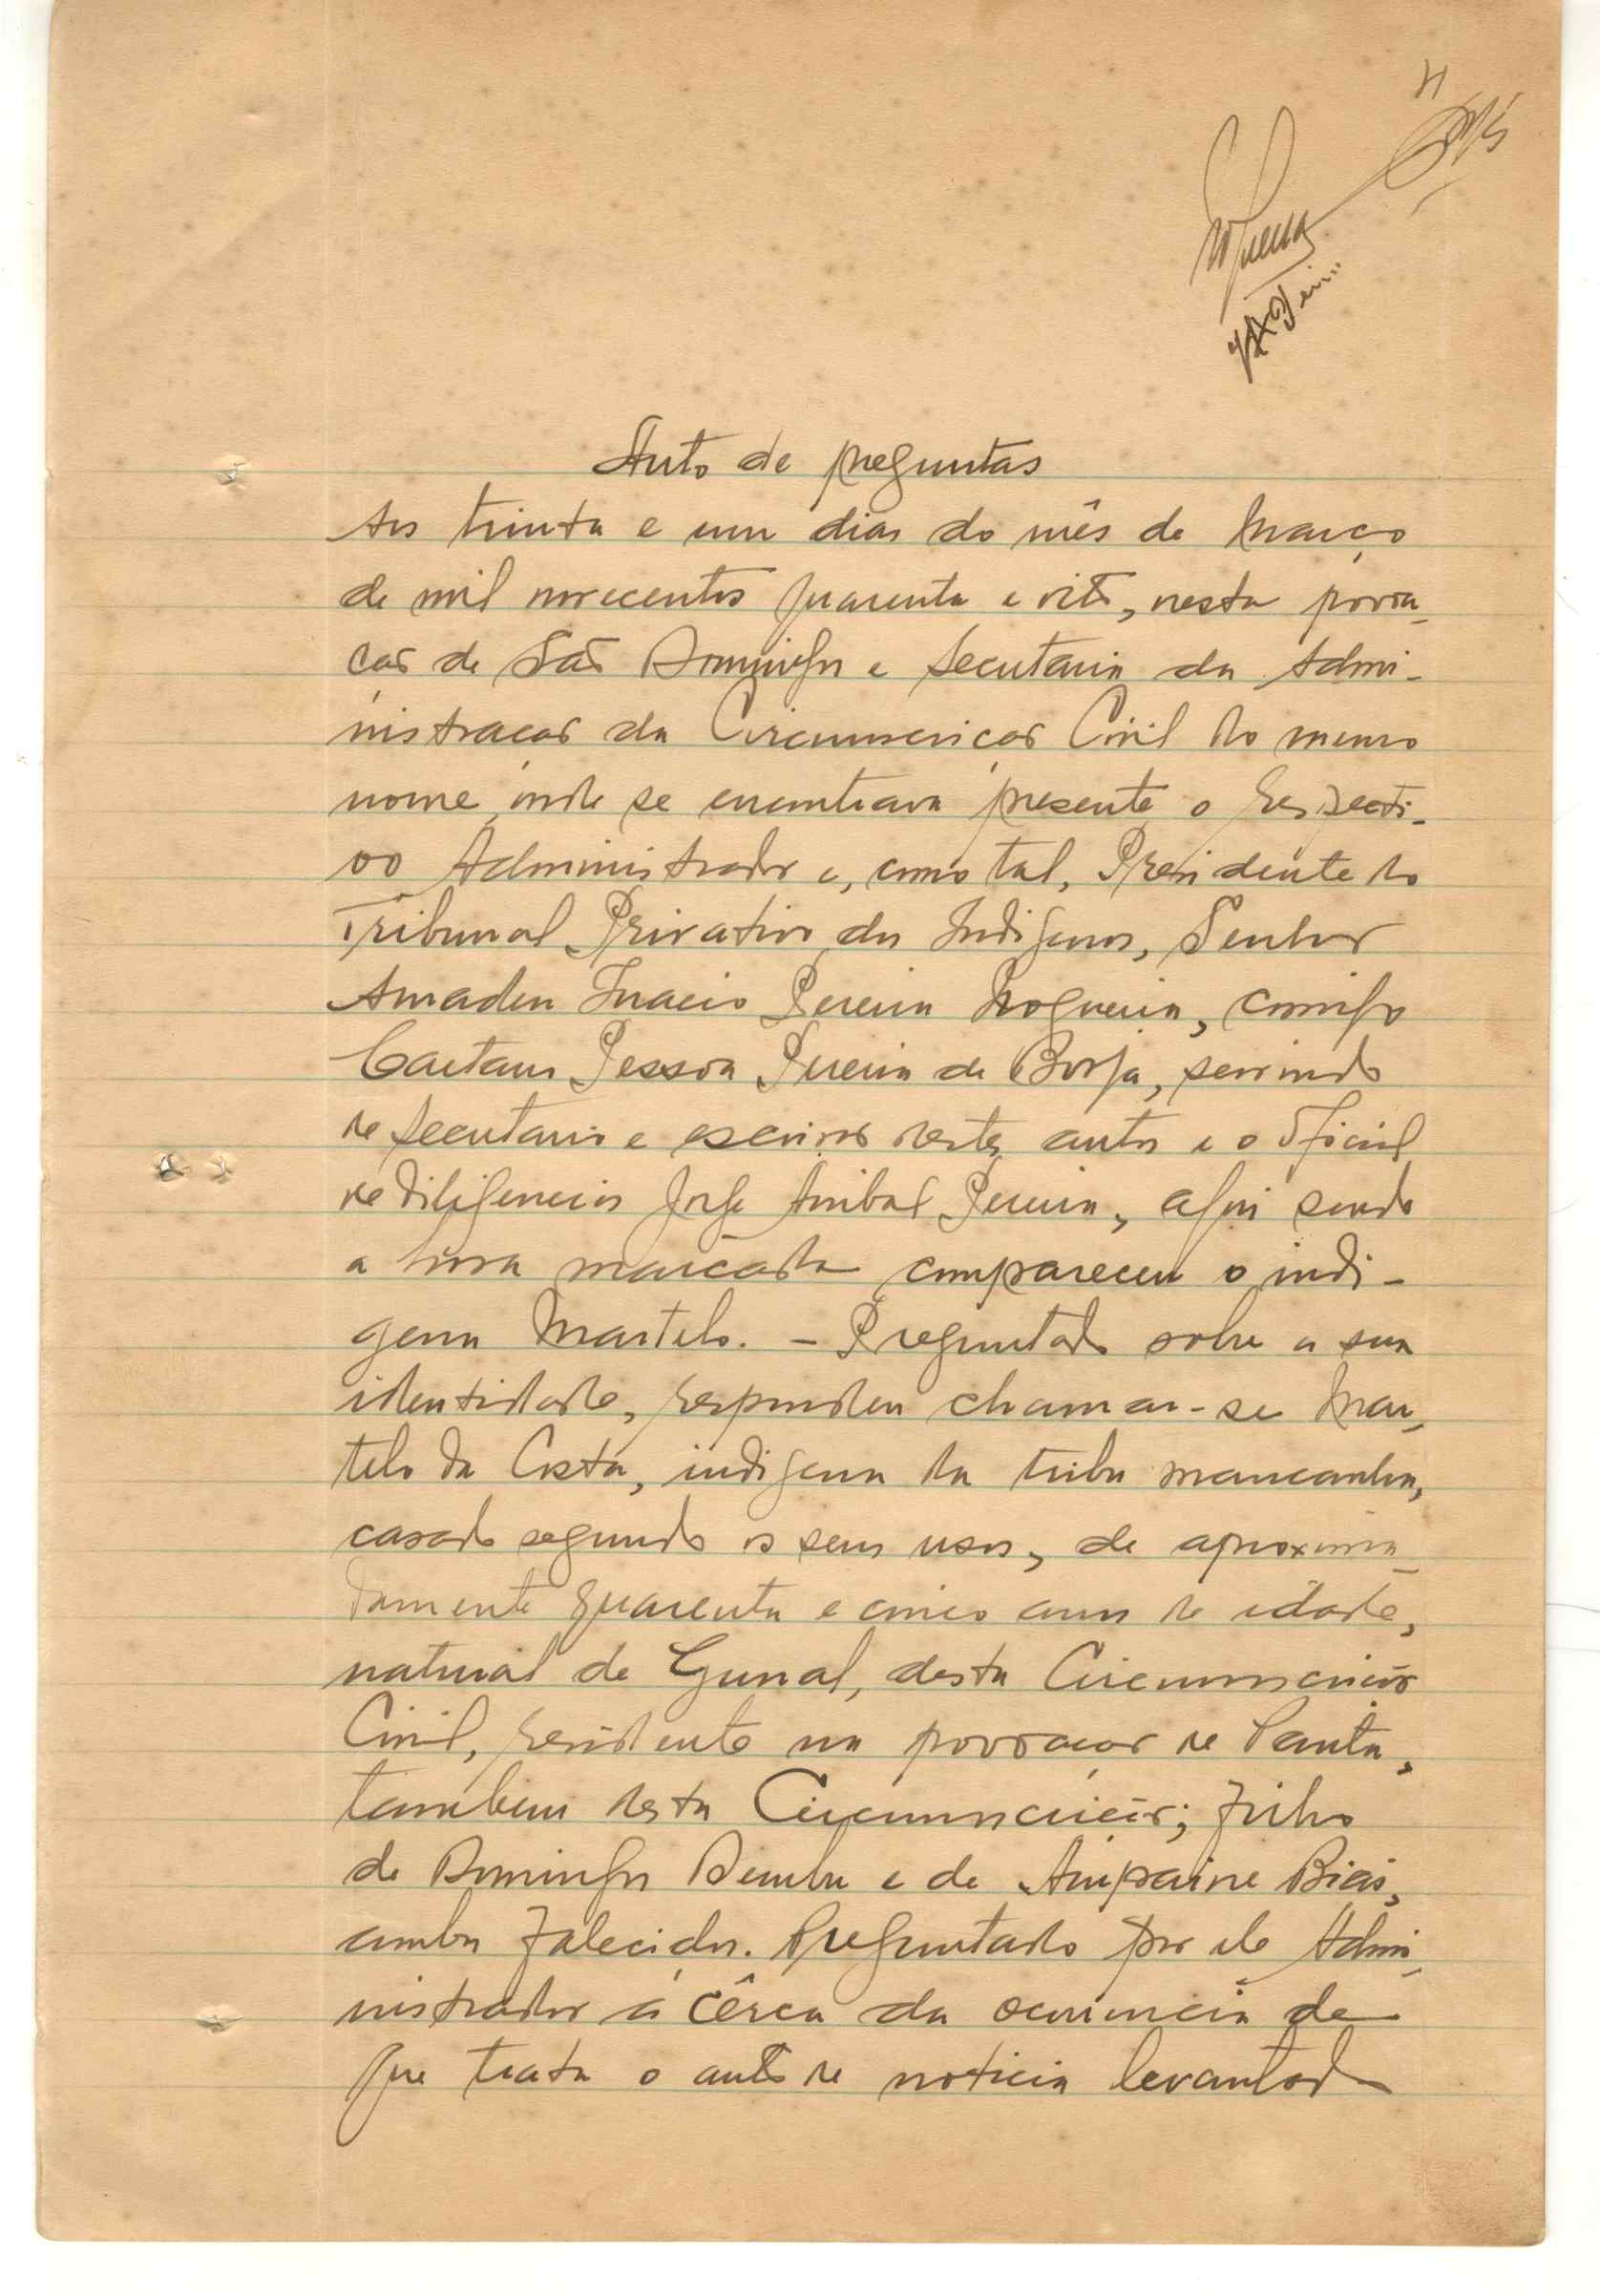 Auto de preguntas
Aos trinta e um dias do mês de Março
de mil novecentos quarenta e oito, nesta povoa-
ção de São Domingos e Secretaria da Admi-
nistração da Circunscrição Civil do mesmo
nome, onde se encontrava presente o respecti-
vo Administrador e, como tal, Presidente do
Tribunal Privativo dos Indigenas, Senhor
Amadeu Inacio Pereira Nogueira, comigo
Caetano Pessoa Pereira de Borja, servindo
de secretario e escrivão destes autos e o oficial
de diligencias Jorge Anibal Pereira, aqui sendo
a hora marcada compareceu o indi-
gena Martelo. - Preguntado sobre a sua
identidade, respondeu chamar-se Mar-
telo da Costa, indigena da tribu mancanha,
casado segundo os seus usos, de aproxima-
damente quarenta e cinco anos de idade,
natural de Gunal, desta Circunscrição
Civil, residente na povoação de
tambem desta Circunscrição; filho
de Domingos Bembu e de Ampaine Biás,
ambos falecidos. Preguntado por ele Admi-
nistrador á cêrca da ocorrencia de
que trata o auto de noticia levantado